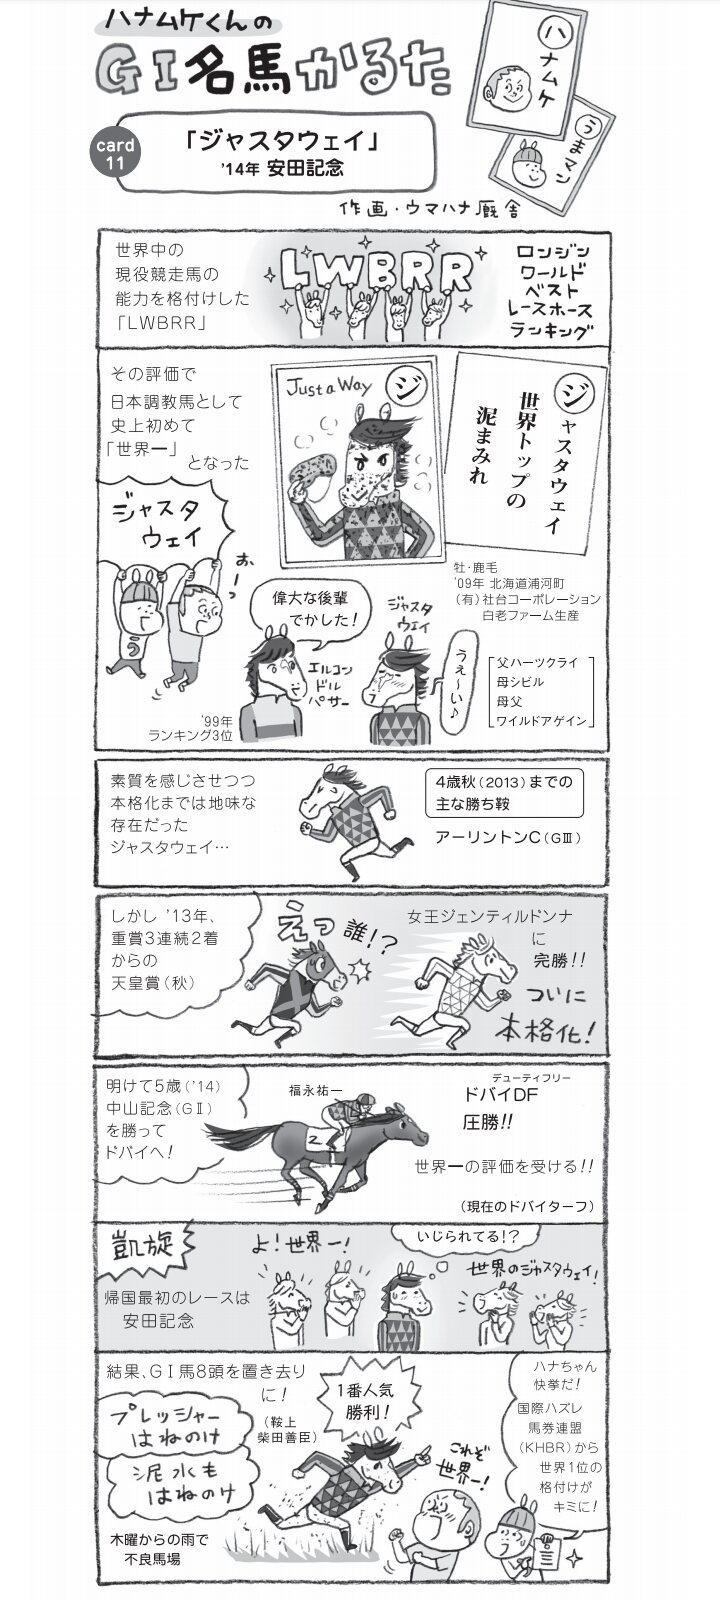 ハナムケくんの
GⅠ名馬かるた
ハナムケ
うまマン
card
11
「ジャスタウェイ」
'14年 安田記念
作画・ウマハナ厩舎
世界中の
現役競走馬の
能力を格付けした
「LWBRR」
LWBRR
ロンジン
ワールド
ベスト
レースホース
ランキング
その評価で
日本調教馬として
史上初めて
「世界一」
となった
Just a Way
ジ
ジャスタウェイ
世界トップの
泥まみれ
ジャスタ
ウェイ
おーっ
う
牡・鹿毛
'09年 北海道浦河町
(有)社台コーポレーション
白老ファーム生産
偉大な後輩
でかした!
エルコン
ドル
パサー
'99年
ランキング3位
ジャスタ
ウェイ
うぇ〜い♪
父ハーツクライ
母シビル
母父
ワイルドアゲイン
素質を感じさせつつ
本格化までは地味な
存在だった
ジャスタウェイ…
4歳秋(2013)までの
主な勝ち鞍
アーリントンC(GⅢ)
しかし '13年、
重賞3連続2着
からの
天皇賞(秋)
えっ誰!?
女王ジェンティルドンナ
に
完勝!!
ついに
本格化!
明けて5歳('14)
中山記念(GⅡ)
を勝って
ドバイへ!
福永祐一
2
デューティフリー
ドバイDF
圧勝!!
世界一の評価を受ける!!
(現在のドバイターフ)
凱旋
帰国最初のレースは
安田記念
よ!世界一!
いじられてる!?
世界のジャスタウェイ!
結果、GⅠ馬8頭を置き去り
に!
(鞍上
柴田善臣)
1番人気
勝利!
プレッシャー
はねのけ
泥水も
はねのけ
木曜からの雨で
不良馬場
これぞ
世界一!
ハナちゃん
快挙だ!
国際ハズレ
馬券連盟
(KHBR)から
世界1位の
格付けが
キミに!